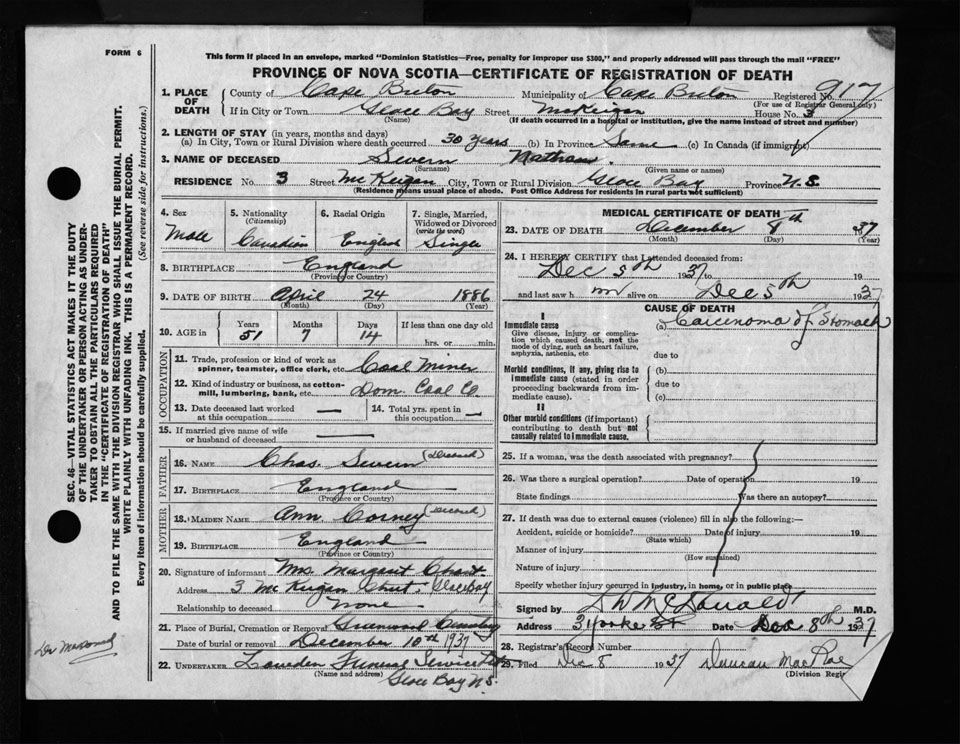 FORM 6
This form if placed in an envelope, marked "Dominion Statistics—Free, penalty for improper use $300," and properly addressed will pass through the mail "FREE"
PROVINCE OF NOVA SCOTIA—CERTIFICATE OF REGISTRATION OF DEATH
1. PLACE OF DEATH
County of Cape Breton Municipality of Cape Breton Registered No. 917
(For use of Registrar General only)
If in City or Town Glace Bay Street McKeigan House No. 3
(Name) (If death occurred in a hospital or institution, give the name instead of street and number)
2. LENGTH OF STAY (in years, months and days)
(a) In City, Town or Rural Division where death occurred 30 years (b) In Province Same (c) In Canada (if immigrant)
3. NAME OF DECEASED Severn Nathan
(Surname) (Given name or names)
RESIDENCE No. 3 Street McKeigan City, Town or Rural Division Glace Bay Province N.S.
(Residence means usual place of abode. Post Office Address for residents in rural parts not sufficient)
4. Sex Male
5. Nationality (Citizenship) Canadian
6. Racial Origin England
7. Single, Married, Widowed or Divorced (write the word) Single
8. BIRTHPLACE England
(Province or Country)
9. DATE OF BIRTH April 24 1886
(Month) (Day) (Year)
10. AGE in Years 51 Months 7 Days 14 If less than one day old hrs. or min.
OCCUPATION
11. Trade, profession or kind of work as spinner, teamster, office clerk, etc. Coal Miner
12. Kind of industry or business, as cotton-mill, lumbering, bank, etc. Dom. Coal Co.
13. Date deceased last worked at this occupation —
14. Total yrs. spent in this occupation —
15. If married give name of wife or husband of deceased —
FATHER
16. NAME Chas. Severn (Deceased)
17. BIRTHPLACE England
(Province or Country)
MOTHER
18. MAIDEN NAME Ann Corney (Deceased)
19. BIRTHPLACE England
(Province or Country)
20. Signature of informant Mrs. Margaret
Address 3 McKeigan Glace Bay
Relationship to deceased None
21. Place of Burial, Cremation or Removal Greenwood Cemetery
Date of burial or removal December 10th 1937
22. UNDERTAKER Funeral Service
(Name and address) Glace Bay N.S.
MEDICAL CERTIFICATE OF DEATH
23. DATE OF DEATH December 8th 1937
(Month) (Day) (Year)
24. I HEREBY CERTIFY that I attended deceased from:
Dec 5th 1937 to 19
and last saw him alive on Dec 5th 1937
CAUSE OF DEATH
I
Immediate cause
Give disease, injury or complication which caused death, not the mode of dying, such as heart failure, asphyxia, asthenia, etc
(a) Carcinoma of Stomach
due to
Morbid conditions, if any, giving rise to immediate cause (stated in order proceeding backwards from immediate cause).
(b)
due to
(c)
II
Other morbid conditions (if important) contributing to death but not causally related to immediate cause.
25. If a woman, was the death associated with pregnancy?
26. Was there a surgical operation? Date of operation 19
State findings Was there an autopsy?
27. If death was due to external causes (violence) fill in also the following:—
Accident, suicide or homicide? Date of injury 19
(State which)
Manner of injury
(How sustained)
Nature of injury
Specify whether injury occurred in industry, in home, or in public place
Signed by McDonald M.D.
Address Date Dec 8th 1937
28. Registrar's Record Number
29. Filed Dec 8 1937 Duncan MacRae
(Division Regis
SEC. 46—VITAL STATISTICS ACT MAKES IT THE DUTY
OF THE UNDERTAKER OR PERSON ACTING AS UNDER-
TAKER TO OBTAIN ALL THE PARTICULARS REQUIRED
IN THE "CERTIFICATE OF REGISTRATION OF DEATH"
AND TO FILE THE SAME WITH THE DIVISION REGISTRAR WHO SHALL ISSUE THE BURIAL PERMIT.
WRITE PLAINLY WITH UNFADING INK. THIS IS A PERMANENT RECORD.
Every item of information should be carefully supplied. (See reverse side for instructions.)